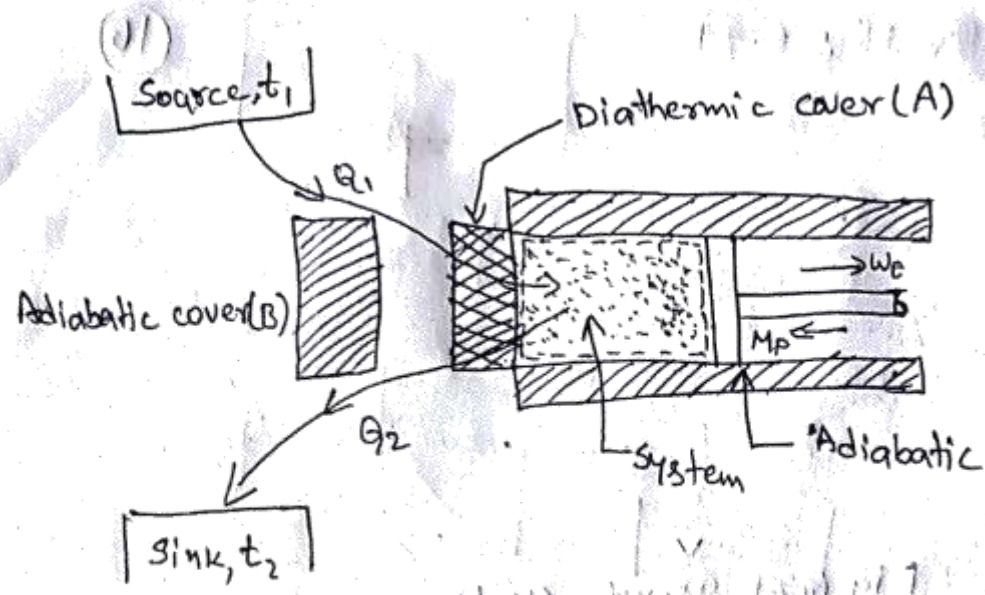 Source, t₁
Diathermic cover (A)
Q₁
Adiabatic cover (B)
System
Adiabatic
Q₂
Sink, t₂